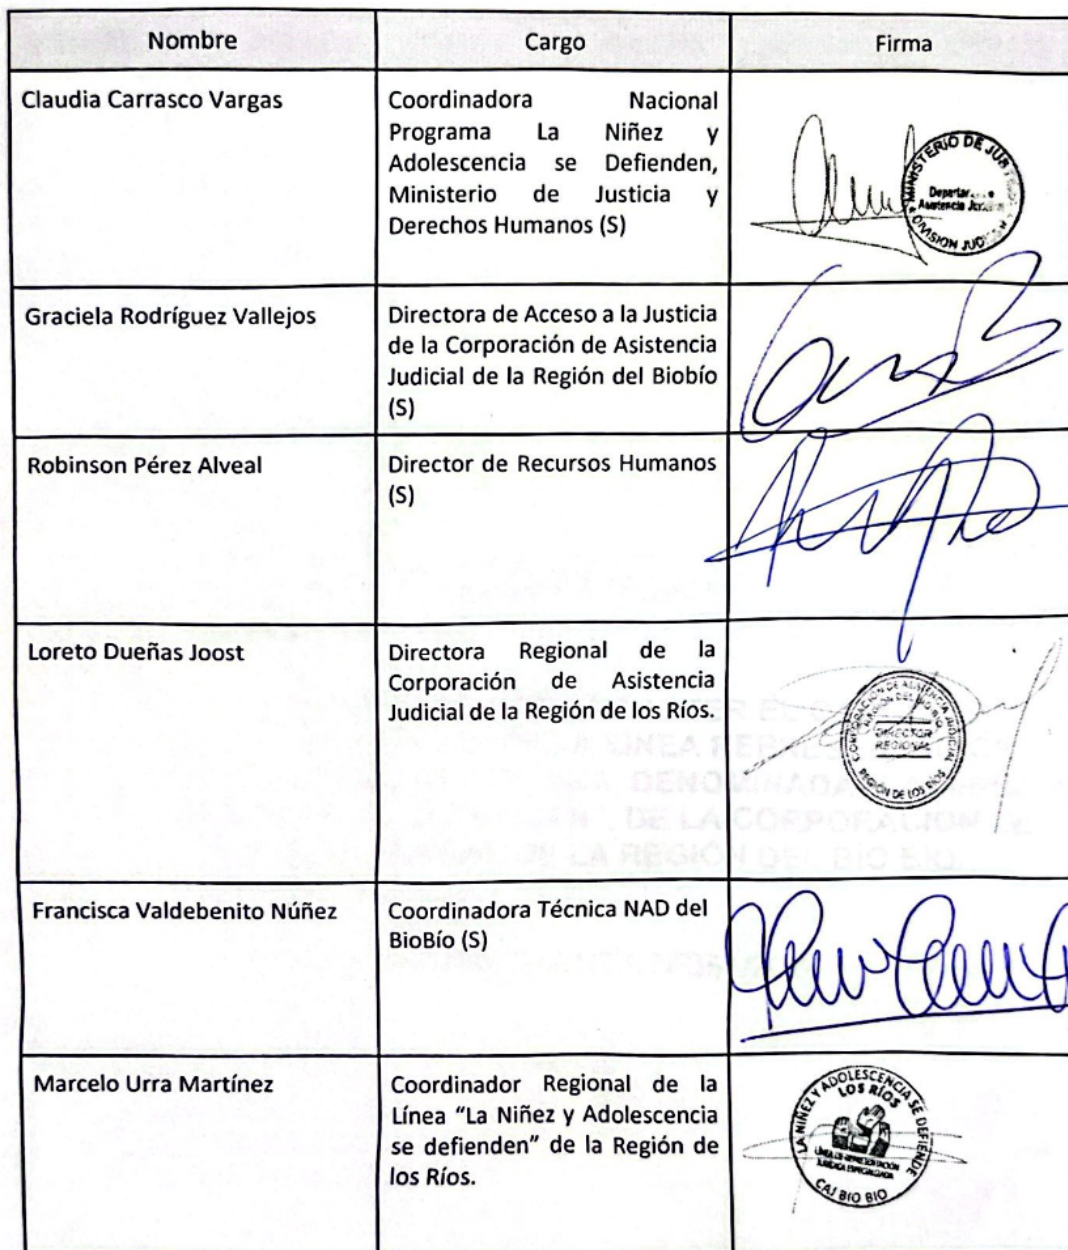 Nombre Cargo Firma
Claudia Carrasco Vargas
Coordinadora Nacional
Programa La Niñez y
Adolescencia se Defienden,
Ministerio de Justicia y
Derechos Humanos (S)
MINISTERIO DE
Asistencia
DIVISION
Graciela Rodríguez Vallejos
Directora de Acceso a la Justicia
de la Corporación de Asistencia
Judicial de la Región del Biobío
(S)
Robinson Pérez Alveal
Director de Recursos Humanos
(S)
Loreto Dueñas Joost
Directora Regional de la
Corporación de Asistencia
Judicial de la Región de los Ríos.
CORPORACIÓN DE ASISTENCIA JUDICIAL
DIRECTOR
REGIONAL
REGIÓN DE LOS RÍOS
DENOMINADA
DE LA CORPORACION
LA REGIÓN DEL BÍO BÍO
Francisca Valdebenito Núñez
Coordinadora Técnica NAD del
BioBío (S)
Marcelo Urra Martínez
Coordinador Regional de la
Línea “La Niñez y Adolescencia
se defienden” de la Región de
los Ríos.
LA NIÑEZ Y ADOLESCENCIA SE DEFIENDE
LOS RÍOS
LÍNEA DE REPRESENTACIÓN
JURÍDICA ESPECIALIZADA
CAJ BIO BIO